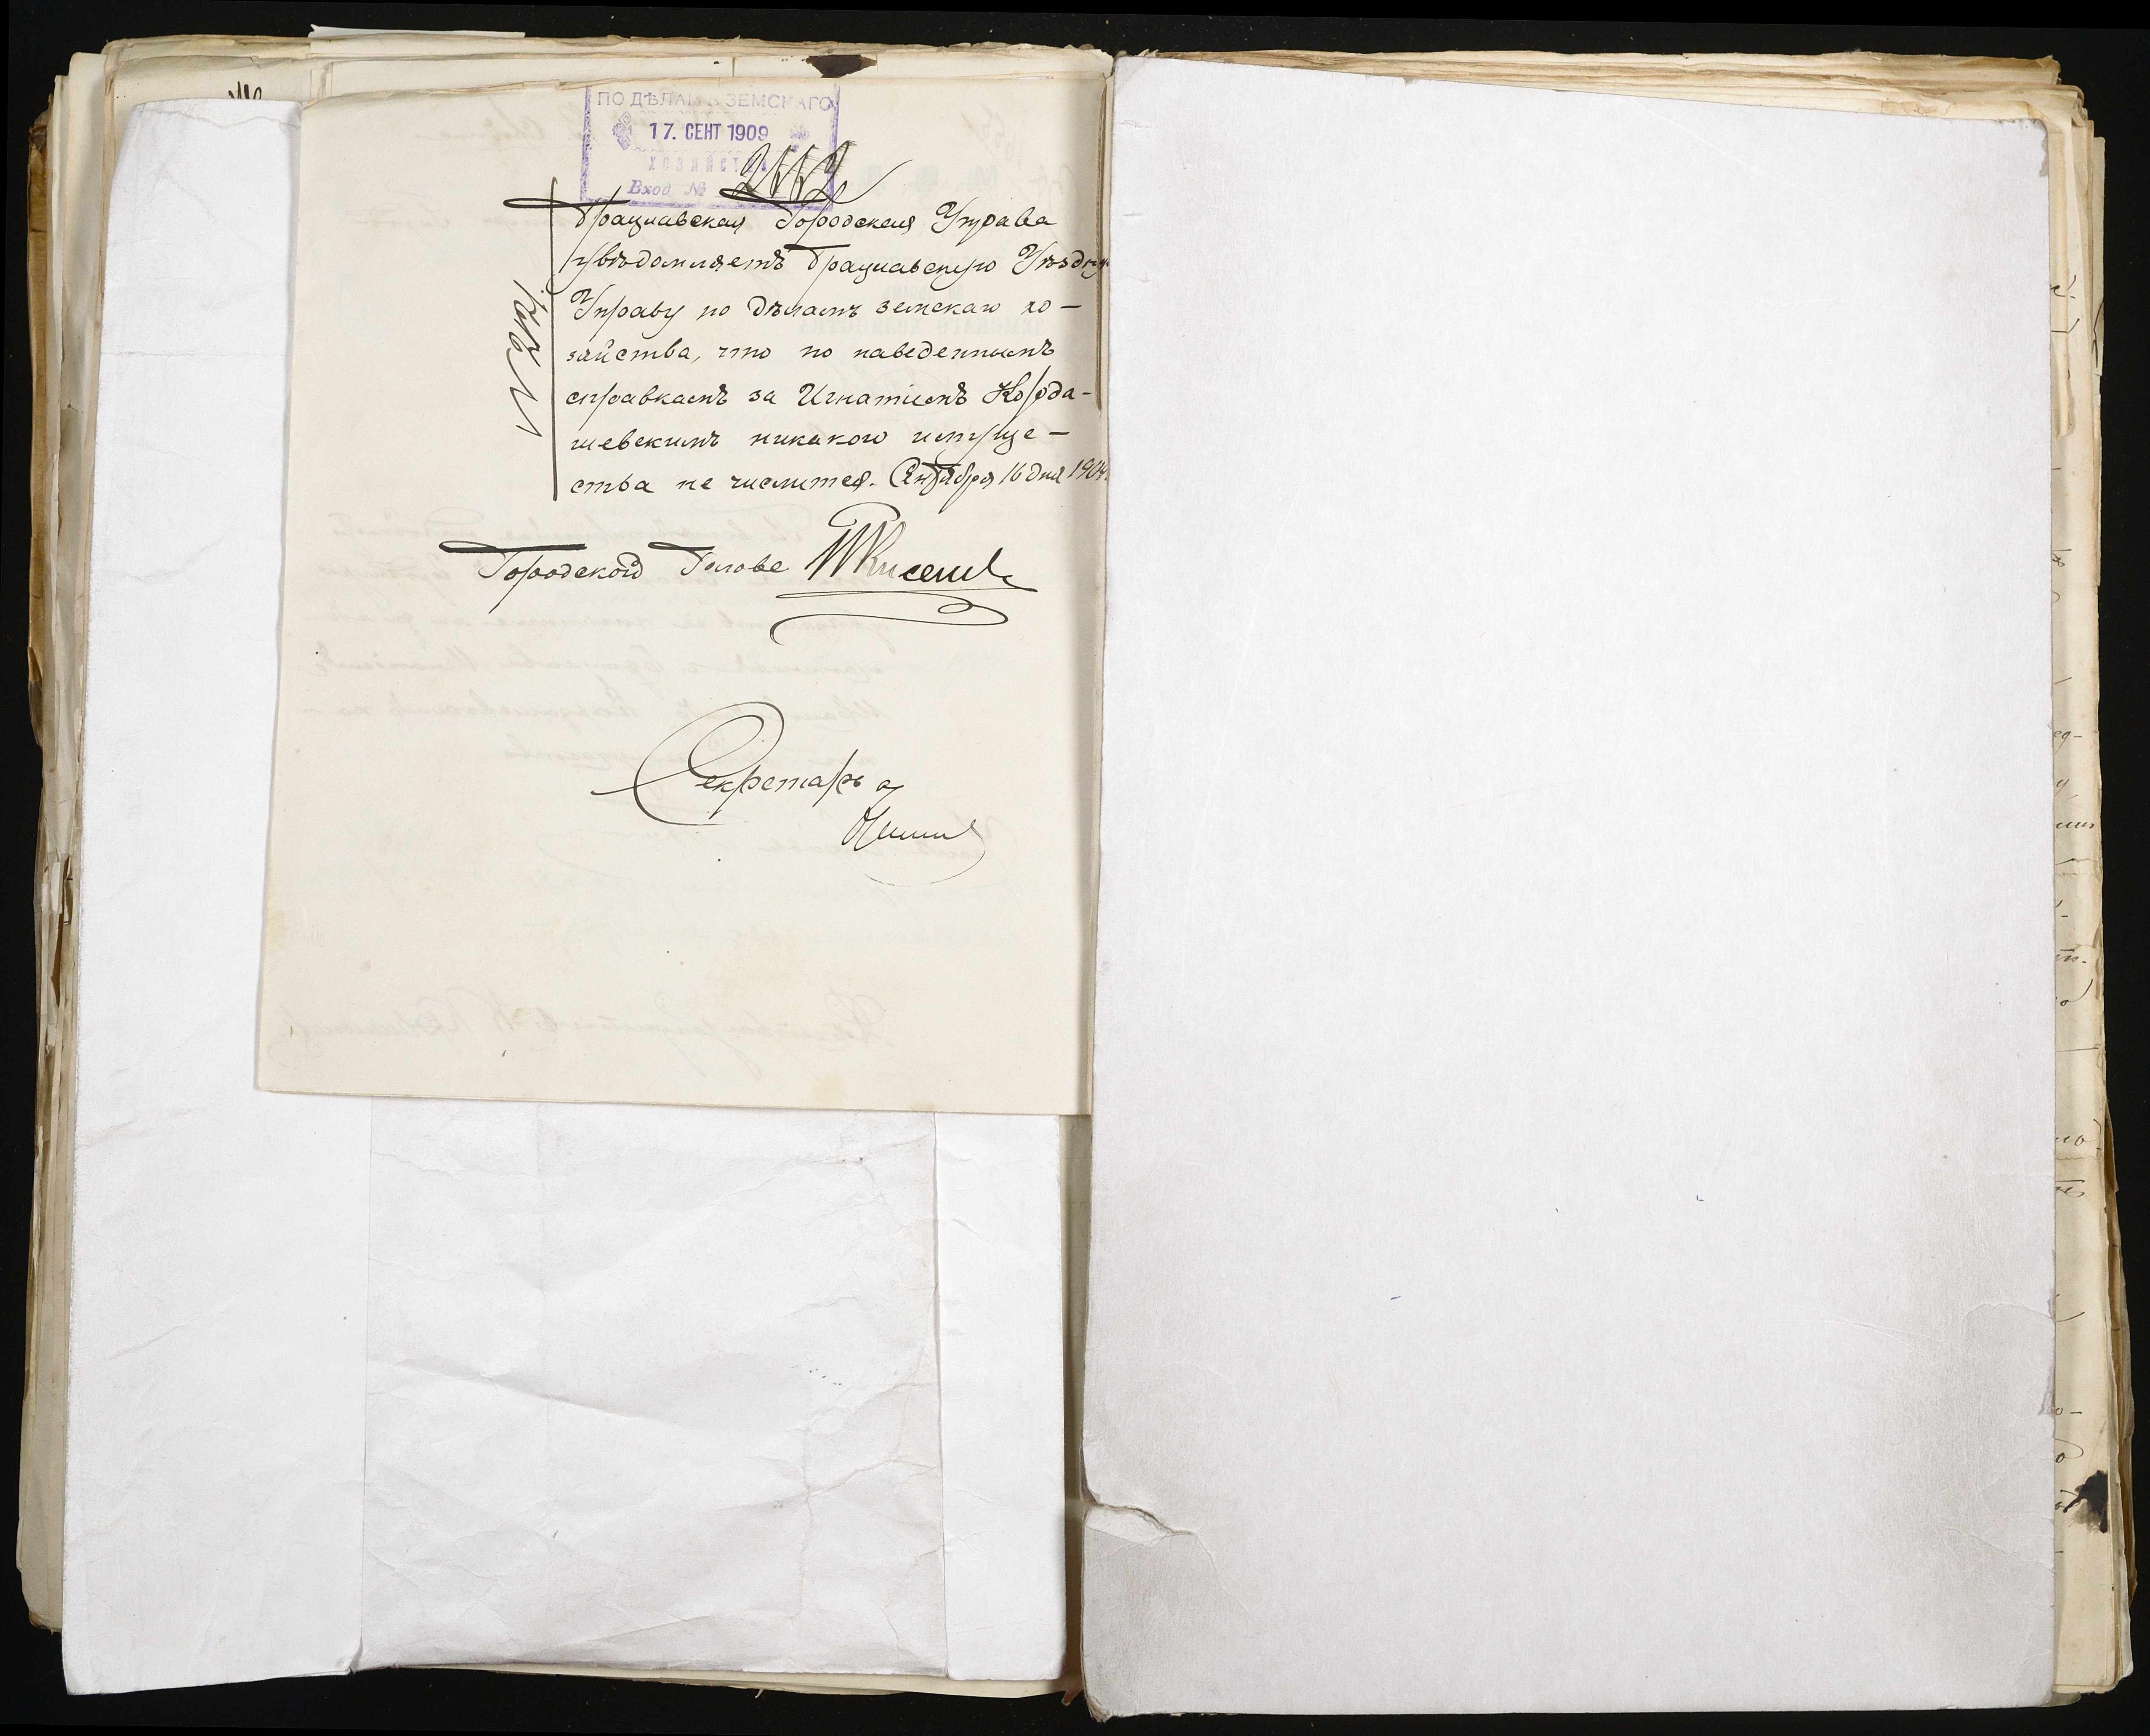 ПО ДѢЛАМЪ ЗЕМСКАГО
17. СЕНТ 1909
ХОЗЯЙСТВА
Вход. №
Брацлавская Городская Управа
увѣдомляетъ Брацлавскую Уѣздну
Управу по дѣламъ земскаго хо-
зяйства, что по наведеннымъ
справкамъ за Игнатіемъ Корда-
шевскимъ никакого имуще-
ства не числится. Сентября 16 дня 1909
Городской Голова
Секретарь